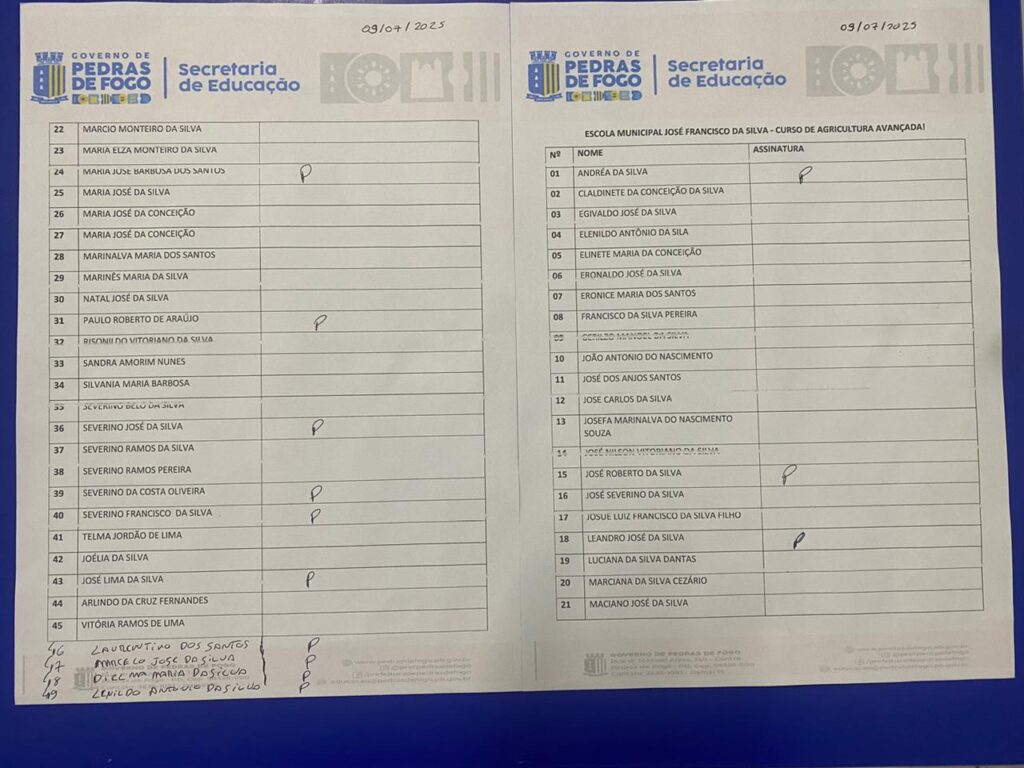 09/07/2025
GOVERNO DE
PEDRAS
DE FOGO
Secretaria
de Educação
22 MARCIO MONTEIRO DA SILVA
23 MARIA ELZA MONTEIRO DA SILVA
24 MARIA JOSE BARBOSA DOS SANTOS P
25 MARIA JOSÉ DA SILVA
26 MARIA JOSÉ DA CONCEIÇÃO
27 MARIA JOSÉ DA CONCEIÇÃO
28 MARINALVA MARIA DOS SANTOS
29 MARINÊS MARIA DA SILVA
30 NATAL JOSÉ DA SILVA
31 PAULO ROBERTO DE ARAÚJO P
32 RISONILDO VITORIANO DA SILVA
33 SANDRA AMORIM NUNES
34 SILVANIA MARIA BARBOSA
35 SEVERINO BELO DA SILVA
36 SEVERINO JOSÉ DA SILVA P
37 SEVERINO RAMOS DA SILVA
38 SEVERINO RAMOS PEREIRA
39 SEVERINO DA COSTA OLIVEIRA P
40 SEVERINO FRANCISCO DA SILVA P
41 TELMA JORDÃO DE LIMA
42 JOÉLIA DA SILVA
43 JOSÉ LIMA DA SILVA P
44 ARLINDO DA CRUZ FERNANDES
45 VITÓRIA RAMOS DE LIMA
46 LAURENTINO DOS SANTOS P
47 MARCELO JOSE DA SILVA P
48 MARIA DA SILVA P
49 LENILDO ANTONIO DA SILVA P
GOVERNO DE PEDRAS DE FOGO
09/07/2025
GOVERNO DE
PEDRAS
DE FOGO
Secretaria
de Educação
ESCOLA MUNICIPAL JOSÉ FRANCISCO DA SILVA - CURSO DE AGRICULTURA AVANÇADA!
Nº NOME ASSINATURA
01 ANDRÉA DA SILVA P
02 CLALDINETE DA CONCEIÇÃO DA SILVA
03 EGIVALDO JOSÉ DA SILVA
04 ELENILDO ANTÔNIO DA SILA
05 ELINETE MARIA DA CONCEIÇÃO
06 ERONALDO JOSÉ DA SILVA
07 ERONICE MARIA DOS SANTOS
08 FRANCISCO DA SILVA PEREIRA
09 MANOEL DA SILVA
10 JOÃO ANTONIO DO NASCIMENTO
11 JOSÉ DOS ANJOS SANTOS
12 JOSE CARLOS DA SILVA
13 JOSEFA MARINALVA DO NASCIMENTO
SOUZA
14 JOSÉ NILSON VITORIANO DA SILVA
15 JOSÉ ROBERTO DA SILVA P
16 JOSÉ SEVERINO DA SILVA
17 JOSUE LUIZ FRANCISCO DA SILVA FILHO
18 LEANDRO JOSÉ DA SILVA P
19 LUCIANA DA SILVA DANTAS
20 MARCIANA DA SILVA CEZÁRIO
21 MACIANO JOSÉ DA SILVA
GOVERNO DE PEDRAS DE FOGO